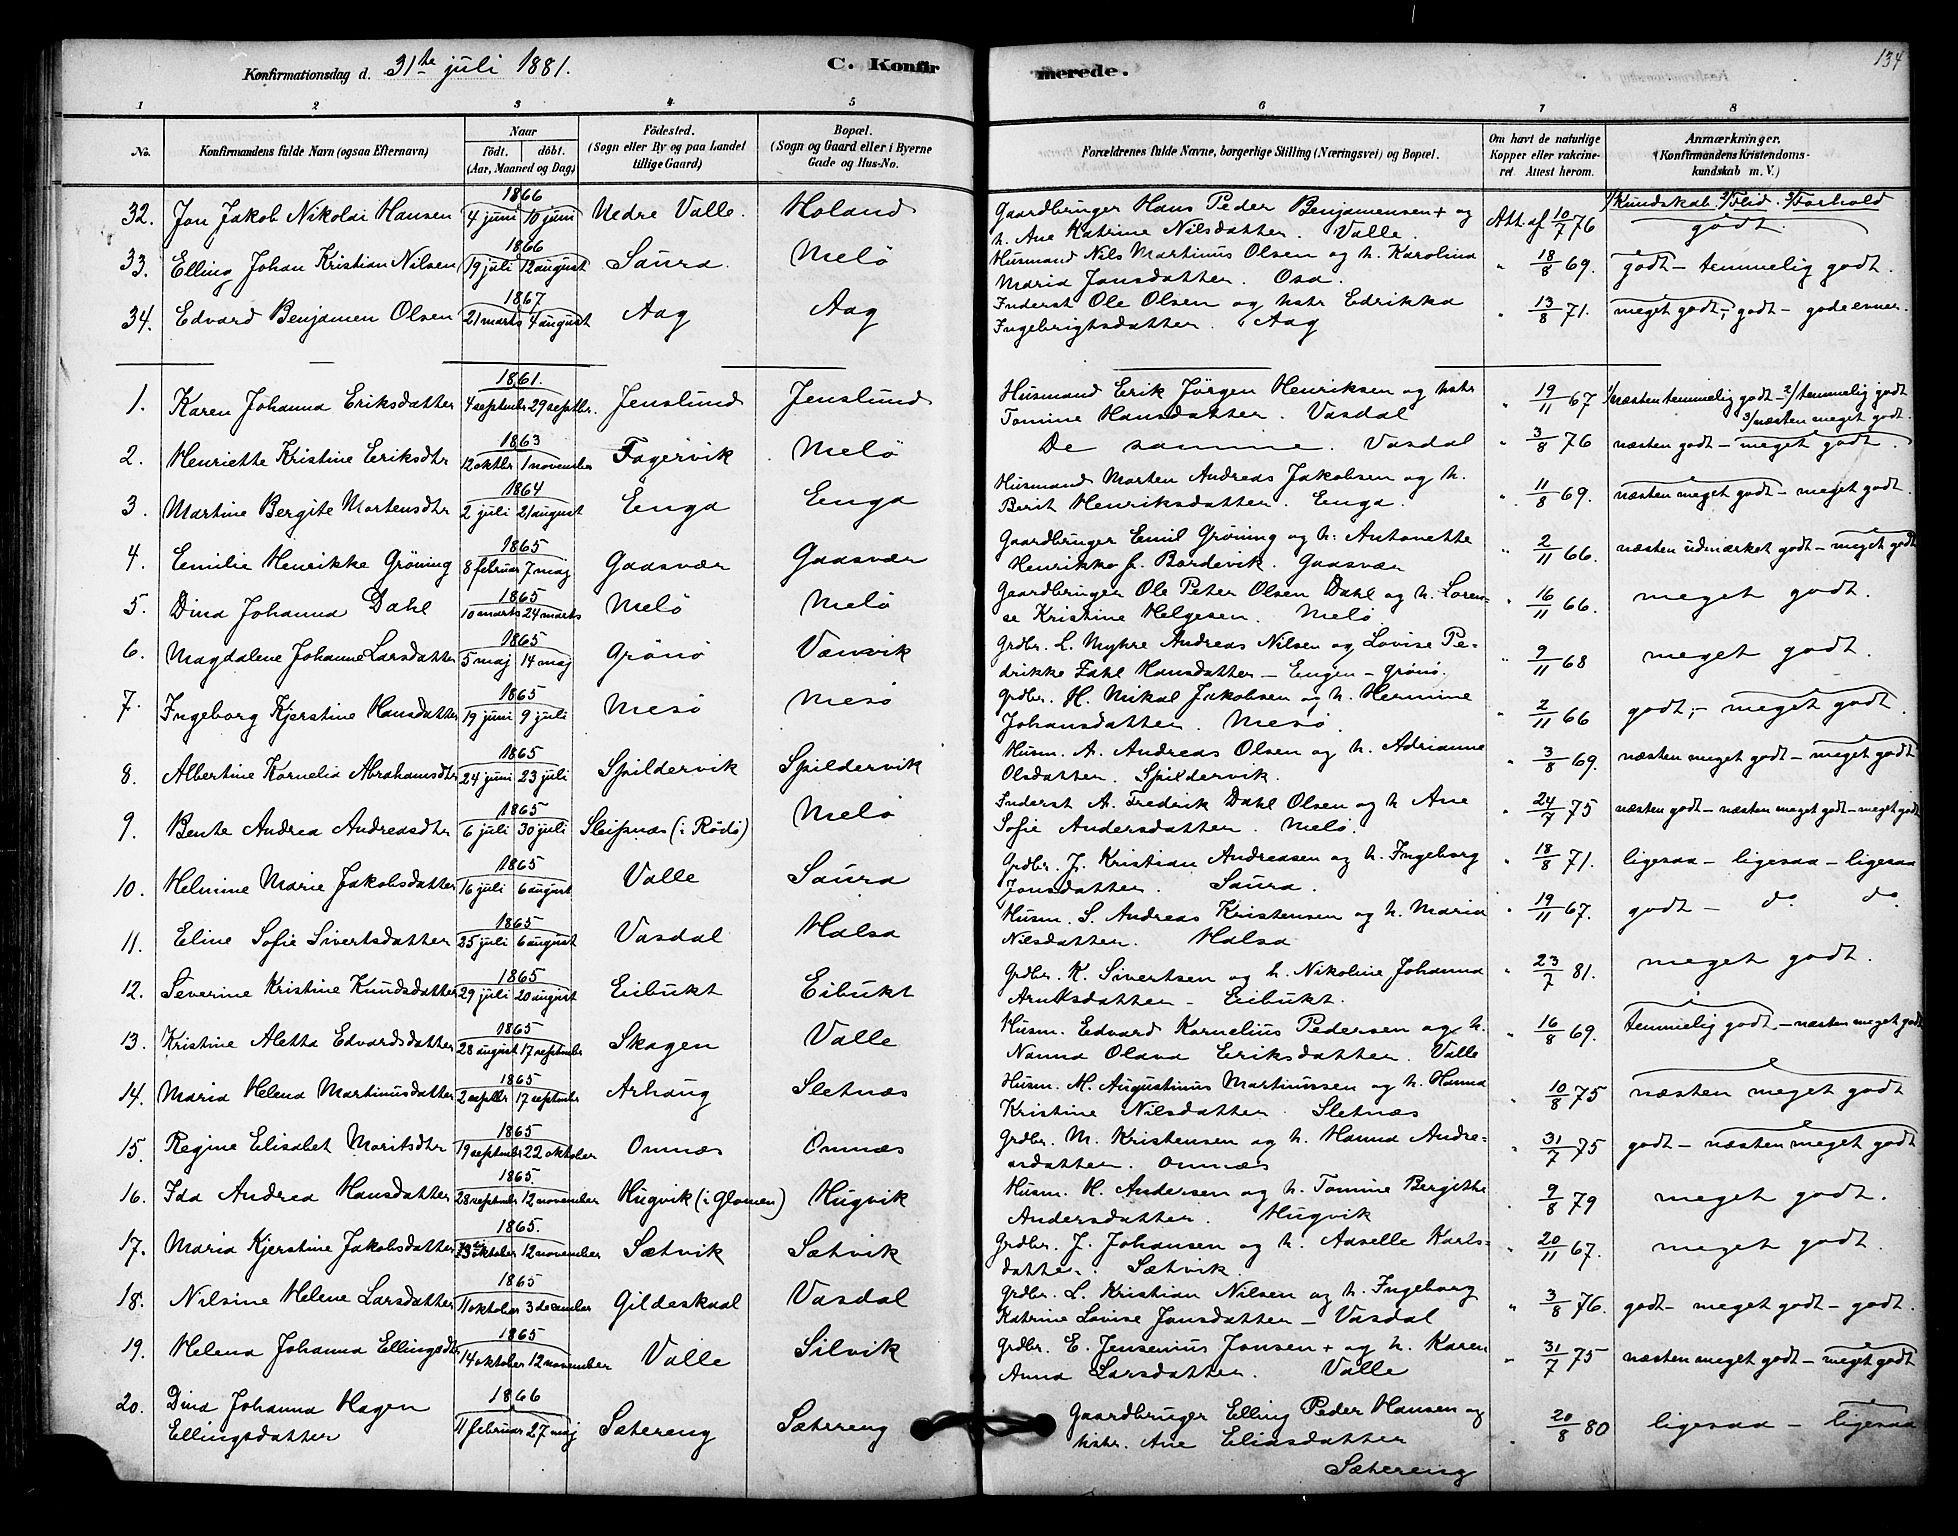 Konfirmationsdag d. 31te juli 1881.
C. Konfirmerede.
134
1 2 3 4 5 6 7 8
No.
Konfirmandens fulde Navn (ogsaa Efternavn)
Naar
födt. döbt.
(Aar, Maaned og Dag)
Födested.
(Sogn eller By og paa Landet
tillige Gaard)
Bopæl.
(Sogn og Gaard eller i Byerne
Gade og Hus-No.
Forældrenes fulde Navne, borgerlige Stilling (Næringsvei) og Bopæl.
Om havt de naturlige
Kopper eller vakcineret
Attest herom.
Anmærkninger.
(Konfirmandens Kristendomskundskab
m. V.)
1/Kundskab. 2/Flid. 3/Forhold
32. Jon Jakob Nikolai Hansen 1866 4 juni 10 juni Nedre Valle. Holand Gaardbruger Hans Peder Benjamensen + og
h. Ane Katrine Nilsdatter. Valle. Att. af 10/7 76 godt.
33. Elling Johan Kristian Nilsen 1866 19 juli 12 august Saura. Melö Husmand Nils Martinus Olsen og h. Karolina
Maria Jonsdatter. Osa. " 18/8 69. godt – temmelig godt.
34. Edvard Benjamen Olsen 1867 21 marts 4 august Aag Aag Inderst Ole Olsen og hstr Edrikka
Ingebrigtsdatter. Aag " 13/8 71. meget godt, godt – gode evner.
1. Karen Johanna Eriksdatter 1861. 4 septmber 29 septbr. Jenslund Jenslund Husmand Erik Jörgen Henriksen og hstr
Tomine Hansdatter. Vasdal " 19/11 67 1/næsten temmelig godt – 2/temmelig godt
3/næsten meget godt.
2. Henriette Kristine Eriksdtr 1863 12 oktbr 1 november Fagervik Melö De samme. Vasdal " 3/8 76 næsten godt – meget godt.
3. Martine Bergite Mortensdtr 1864 2 juli 21 august Enga Enga Husmand Morten Andreas Jakobsen og h.
Berit Henriksdatter. Enga. " 11/8 69. næsten meget godt – meget godt.
4. Emilie Henrikke Gröning 1865 8 februar 7 maj Gaasvær Gaasvær Gaardbruger Emil Gröning og h. Antonette
Henrikke f. Bordevik. Gaasvær " 2/11 66. næsten udmærket godt – meget godt
5. Dina Johanna Dahl 1865 10 marts 24 marts Melö Melö Gaardbruger Ole Peter Olsen Dahl og h. Lorense
Kristine Helgesen. Melö. " 16/11 66. meget godt.
6. Magdalene Johanne Larsdatter 1865 5 maj 14 maj Grönö Vænvik Grdbr. L. Myhre Andreas Nilsen og Lovise Pedrikke
Fahl Hansdatter – Engen – Grönö. " 9/11 68 meget godt.
7. Ingeborg Kjerstine Hansdatter 1865 19 juni 9 juli Mesö Mesö Grdbr. H. Mikal Jakobsen og h. Hermine
Johansdatter. Mesö. " 2/11 66 godt, – meget godt.
8. Albertine Kornelia Abrahamsdtr 1865 24 juni 23 juli Spildervik Spildervik Husm. A. Andreas Olsen og h. Adrianne
Olsdatter. Spildervik. " 3/8 69. næsten meget godt – meget godt
9. Bente Andrea Andreasdtr 1865 6 juli 30 juli Sleipnæs (i Rödö) Melö Inderst A. Fredrik Dahl Olsen og h. Ane
Sofie Andersdatter. Melö. " 24/7 75 næsten godt – næsten meget godt – meget godt
10. Helmine Marie Jakobsdatter 1865 16 juli 6 august Valle Saura Grdbr. J. Kristian Andreasen og h. Ingeborg
Jonsdatter. Saura. " 18/8 71. ligesaa – ligesaa – ligesaa
11. Eline Sofie Sivertsdatter 1865 25 juli 6 august Vasdal Halsa Husm. S. Andreas Kristensen og h. Maria
Nilsdatter. Halsa " 19/11 67. godt – do do
12. Severine Kristine Knudsdatter 1865 29 juli 20 august Eibukt Eibukt Grdbr. K. Sivertsen og h. Nikoline Johanna
Arntsdatter – Eibukt. " 23/7 81. meget godt.
13. Kristine Aletta Edvardsdatter 1865 28 august 17 september Skagen Valle Husm. Edvard Kornelius Pedersen og h.
Nanna Olava Eriksdatter. Valle " 16/8 69. temmelig godt – næsten meget godt
14. Maria Helena Martinusdatter 1865 2 septbr 17 septmber Arhaug Sletnæs Husm. M. Augustinus Martinussen og h. Hanna
Kristine Nilsdatter. Sletnæs " 10/8 75 næsten meget godt
15. Regine Elisabet Moritsdtr 1865 19 septmber 22 oktober Omnæs Omnæs Grdbr. M. Kristensen og h. Hanna Andreasdatter.
Omnæs " 31/7 75 godt – næsten meget godt
16. Ida Andrea Hansdatter 1865. 28 septmber 12 november Hugvik (i Glomen) Hugvik Husm. H. Andersen og h. Tomine Bergithe
Andersdatter. Hugvik " 9/8 79 meget godt.
17. Maria Kjerstine Jakobsdatter 1865. oktober 12 november Sætvik Sætvik Grdbr. J. Johansen og h. Adselle Karlsdatter.
Sætvik. " 20/11 67. meget godt.
18. Nilsine Helene Larsdatter 1865 11 oktober 3 december Gildeskaal Vasdal Grdbr. L. Kristian Nilsen og h. Ingeborg
Katrine Lovise Jonsdatter – Vasdal " 3/8 76. godt – meget godt – godt.
19. Helena Johanna Ellingsdtr 1865 14 oktober 12 november Valle Silvik Grdbr. E. Jensenius Jonsen + og h. Karen
Anna Larsdatter. Valle " 31/7 75 næsten meget godt – meget godt
20. Dina Johanna Hagen
Ellingsdatter 1866 11 februar 27 maj Sætereng Sætereng Gaardbruger Elling Peder Hansen og
hstr. Ane Eliasdatter
Sætereng " 20/8 80 ligesaa – ligesaa